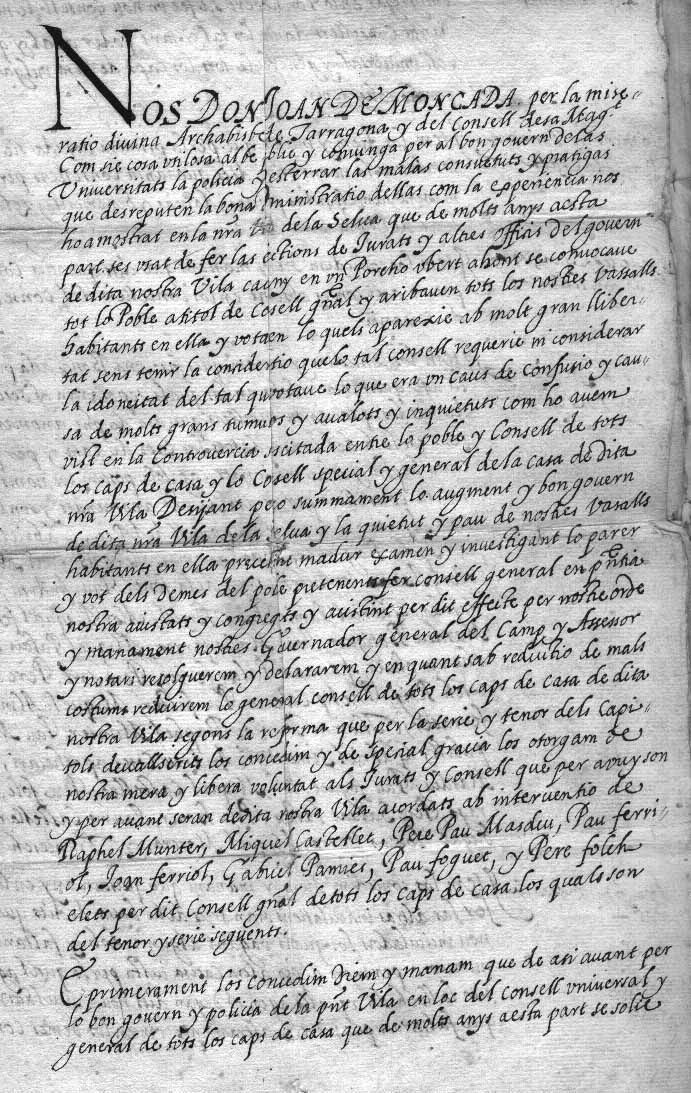 NOS DON JOAN DE MONCADA, per la mise-
ratio divina Archabisbe de Tarragona, y del Consell de sa Magt.
Com sie cosa utilosa al be públic y convinga per al bon govern de las
Universitats la policia y desterrar las malas consuetuts y pratigas
que desreputen la bona administratio dellas com la experiencia nos
ho a mostrat en la nra Vila de la Selva que de molts anys a esta
part ses usat de fer las ections de Jurats y altres officis del govern
de dita nostra Vila cascuny en un Porcho ubert ahont se convocave
tot lo Poble a titol de Cosell gñal y aribaven tots los nostres vassalls
habitants en ella y votaen lo quels aparexie ab molt gran lliber-
tat sens tenir la considertio quelo tal consell requerie ni considerar
la idoneitat del tal quvotave lo que era un caus de confusio y cau-
sa de molts grans tumuos y avalots y inquietuts com ho avem
vist en la controvercia sscitada entre lo poble y Consell de tots
los caps de casa y lo Cosell special y general de la casa de dita
nra Vila Desijant peo summament lo augment y bon govern
de dita nra Vila de la Selva y la quietut y pau de nostres vasalls
habitants en ella precehint madur examen y investigant lo parer
y vot dels Demes del pole pretenents fer consell general en pñtia
nostra aiustats y congregts y assistint per dit effecte per nostre orde
y manament nostres Governador general del Camp y Assessor
y notari resolguerem y declararem y en quant sab reductio de mals
costums reduirem lo general consell de tots los caps de casa de dita
nostra Vila segons la reforma que per la serie y tenor dels Capi-
tols devallscrits los concedim y de special gracia los otorgam de
nostra mera y libera voluntat als Jurats y Consell que per avuy son
y per avant seran de dita nostra Vila acordats ab interventio de
Raphel Munter, Miquel Castellet, Pere Pau Masdeu, Pau ferri-
ol, Joan ferriol, Gabriel Pamies, Pau foguet, y Pere folch
elets per dit Consell gñal de tots los caps de casa, los quals son
del tenor y serie seguents.
E primerament los concedim Diem y manam que de assi avant per
lo bon govern y policia de la pñt Vila en loc del Consell universal y
general de tots los caps de casa que de molts anys a esta part se solie